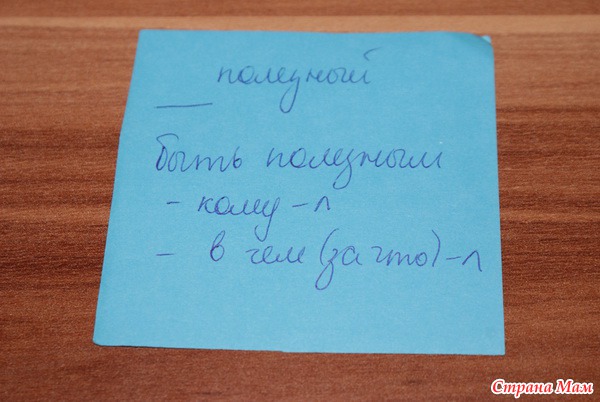 полезный
___
быть полезным
- кому-л
- в чем (за что)-л
Страна Мам